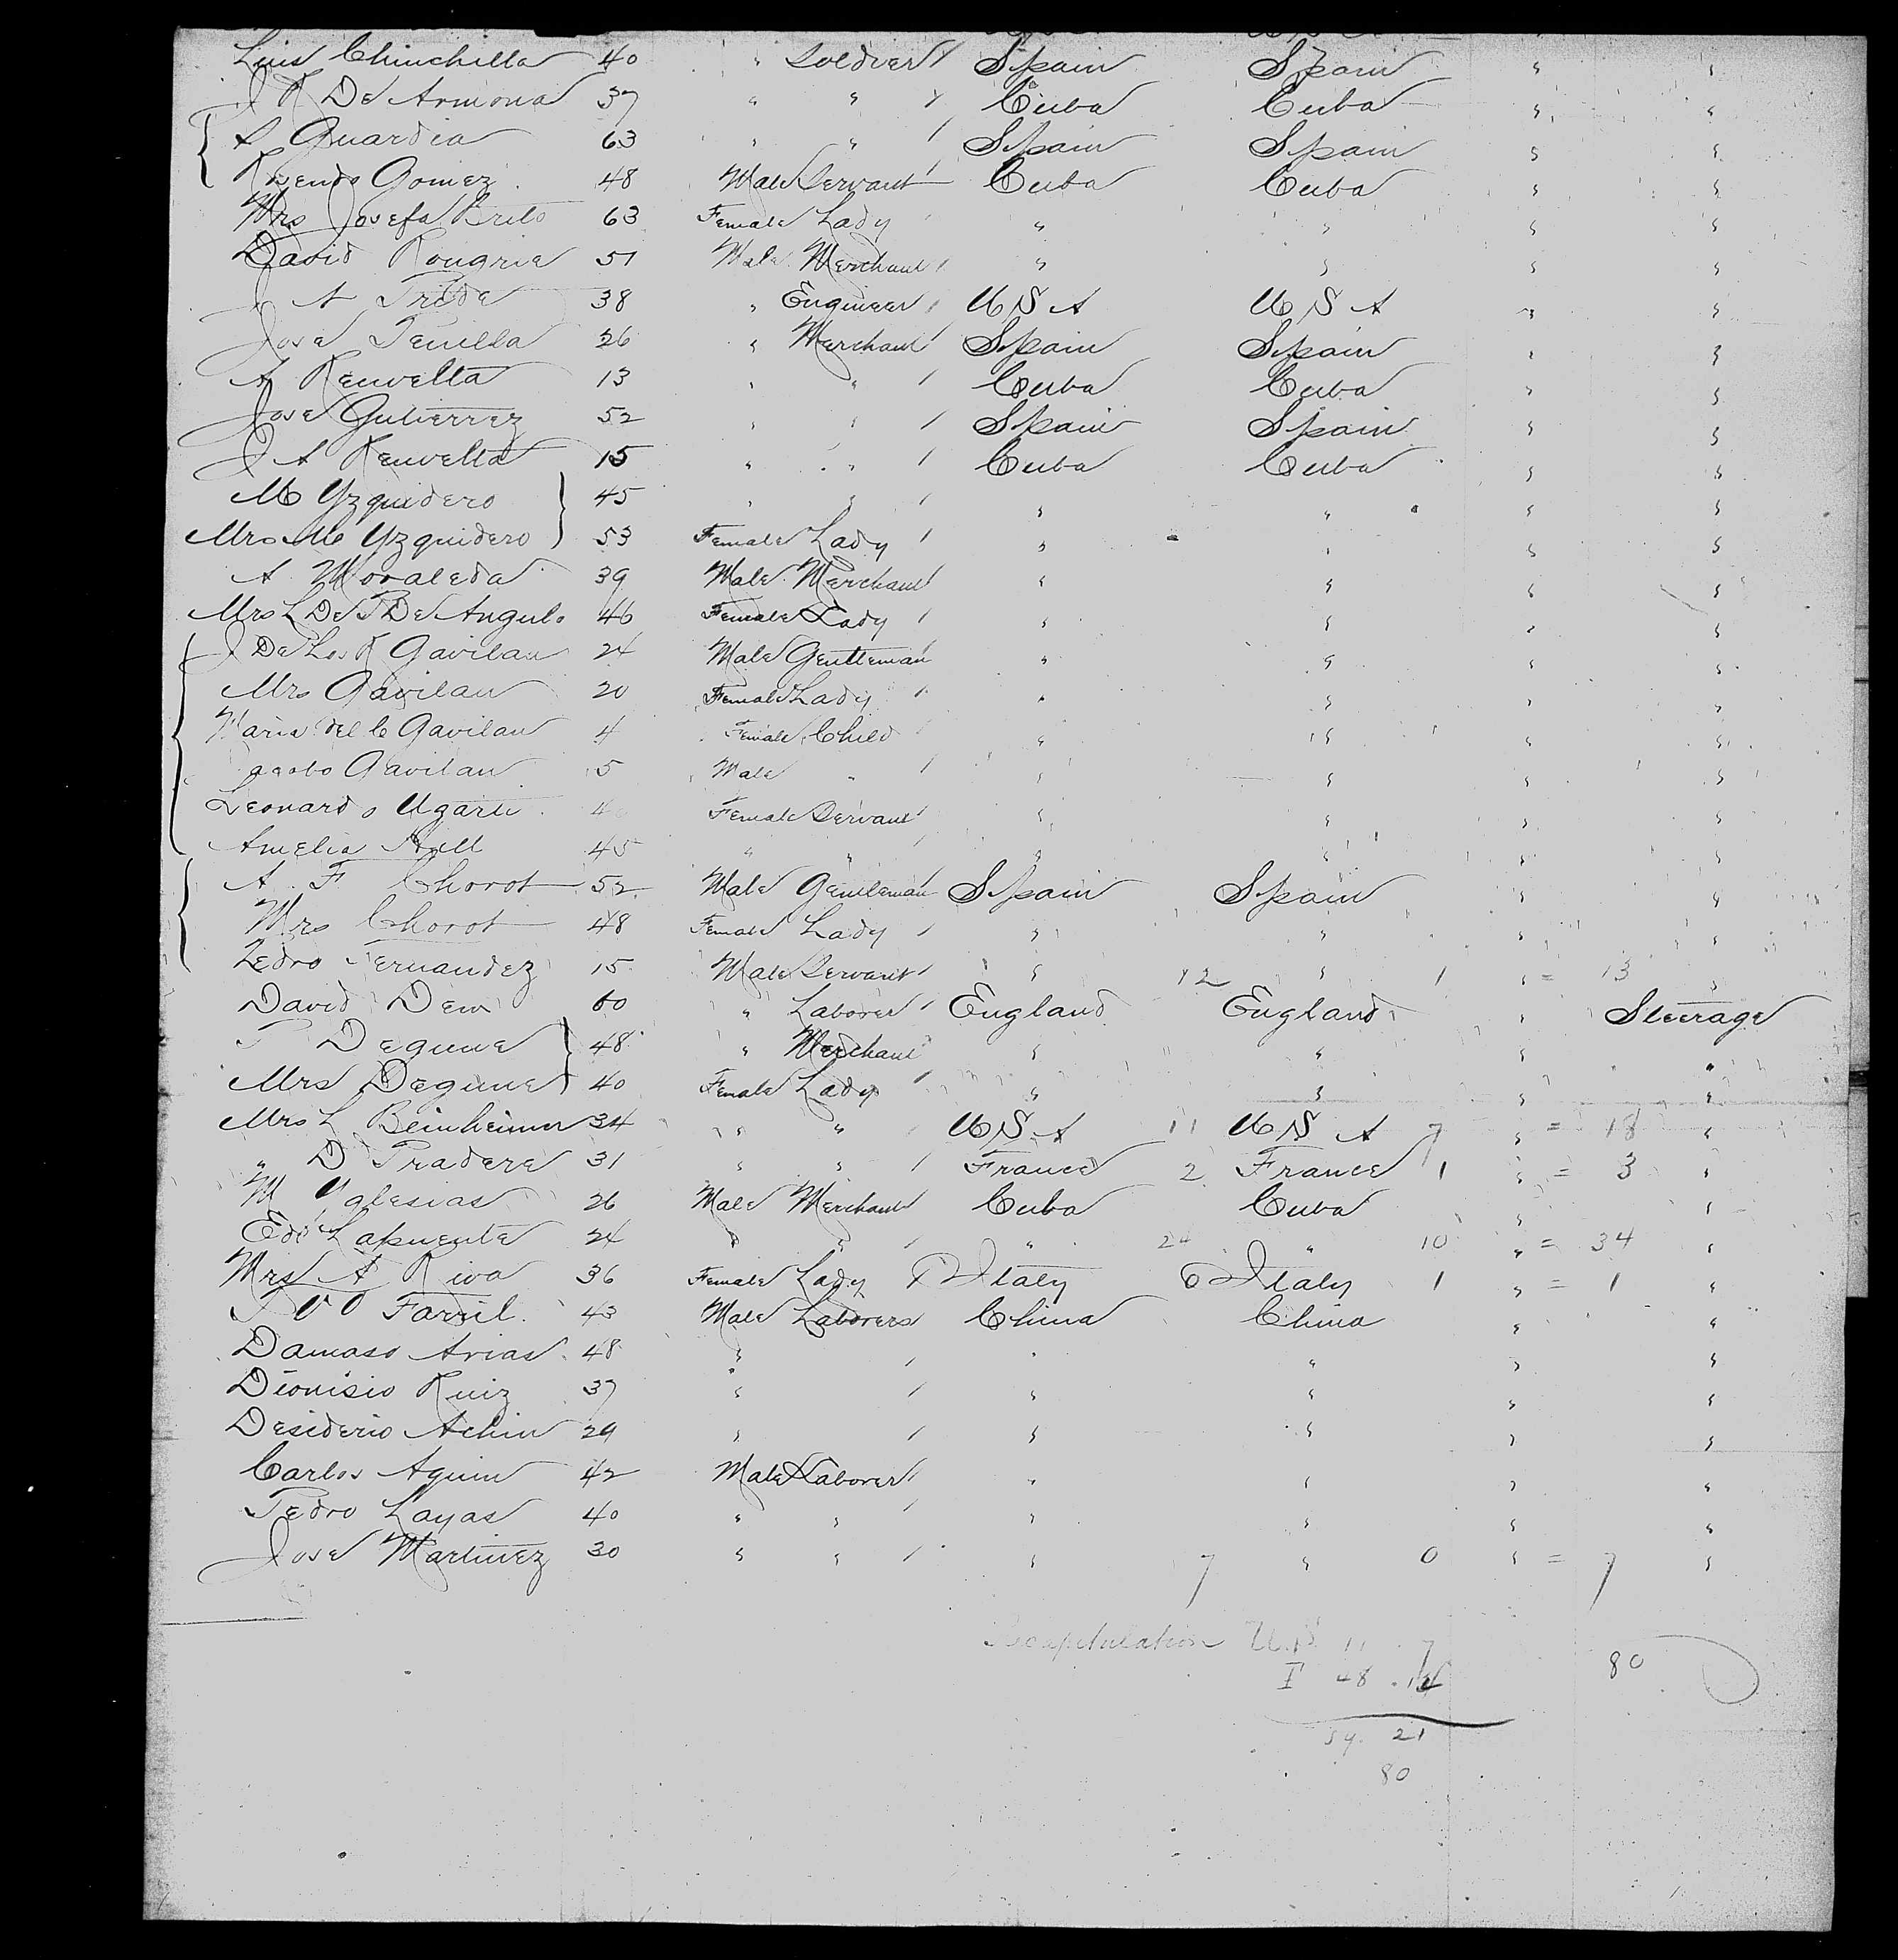 Luis Chinchilla 40 " Soldier Spain Spain " "
J R De Armona 37 " " Cuba Cuba " "
A Guardia 63 " " Spain Spain " "
Gomez 48 Male Servant Cuba Cuba " "
Mrs Josefa Brito 63 Female Lady " " " "
David 51 Male Merchant " " " "
J A 38 " Engineer U S A U S A " "
Jose 26 " Merchant Spain Spain " "
A Renvelta 13 " " Cuba Cuba " "
Jose Gutierrez 52 " " Spain Spain " "
J A Renvelta 15 " " Cuba Cuba " "
M Yzquidero 45 " " " " " "
Mrs M Yzquidero 53 Female Lady " " " "
A Moraleda 39 Male Merchant " " " "
Mrs L De P De Angulo 46 Female Lady " " " "
J De Los R Gavilan 24 Male Gentleman " " " "
Mrs Gavilan 20 Female Lady " " " "
Maria del C Gavilan 4 Female Child " " " "
Jacobo Gavilan 5 Male " " " " "
Leonardo Ugarte Female Servant " " " "
Amelia 45 " " " " " "
A F Chorot 52 Male Gentleman Spain Spain " "
Mrs Chorot 48 Female Lady " " " "
Pedro Fernandez 15 Male Servant " 12 " 1 " = 13 "
David Dew 60 " Laborer England England " Steerage
P Degune 48 " Merchant " " " "
Mrs Degune 40 Female Lady " " " "
Mrs L Beinheimer 34 " " U S A 11 U S A 7 " = 18 "
" D Pradere 31 " " France 2 France 1 " = 3 "
M Yglesias 26 Male Merchant Cuba Cuba " "
Edo Lapuente 24 " " " 24 " 10 " = 34 "
Mrs A Riva 36 Female Lady Italy 0 Italy 1 " = 1 "
43 Male Laborers China China " "
Damaso Arias 48 " " " " "
Dionisio Ruiz 37 " " " " "
Desiderio Achin 29 " " " " "
Carlos Aquin 42 Male Laborer " " " "
Pedro Layas 40 " " " " " "
Jose Martinez 30 " " " 7 " 0 " = 7 "
Recapitulation U.S. 11 7
F 48 14 80
59 21
80